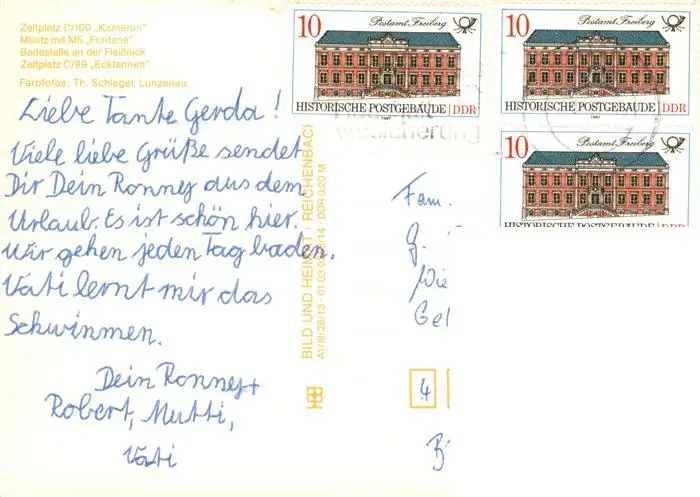 Zeltplatz C/100 „Kamerun"
Müritz mit MS „Fontane"
Badestelle an der Fleißnick
Zeltplatz C/99 „Ecktannen"
Farbfotos: Th. Schlegel, Lunzenau
Liebe Tante Gerda!
Viele liebe Grüße sendet
Dir Dein Ronney aus dem
Urlaub. Es ist schön hier.
Wir gehen jeden Tag baden.
Vati lernt mir das
Schwinmen.
Dein Ronney +
Robert, Mutti,
Vati
BILD UND HEIM REICHENBACH
A1/III/26/13 · 01 03 14 · DDR 0,20 M
10 Postamt Freiberg
HISTORISCHE POSTGEBÄUDE DDR
1987
10 Postamt Freiberg
HISTORISCHE POSTGEBÄUDE DDR
1987
10 Postamt Freiberg
HISTORISCHE POSTGEBÄUDE DDR
versicherung
Fam.
G.
Wie
Gel
4